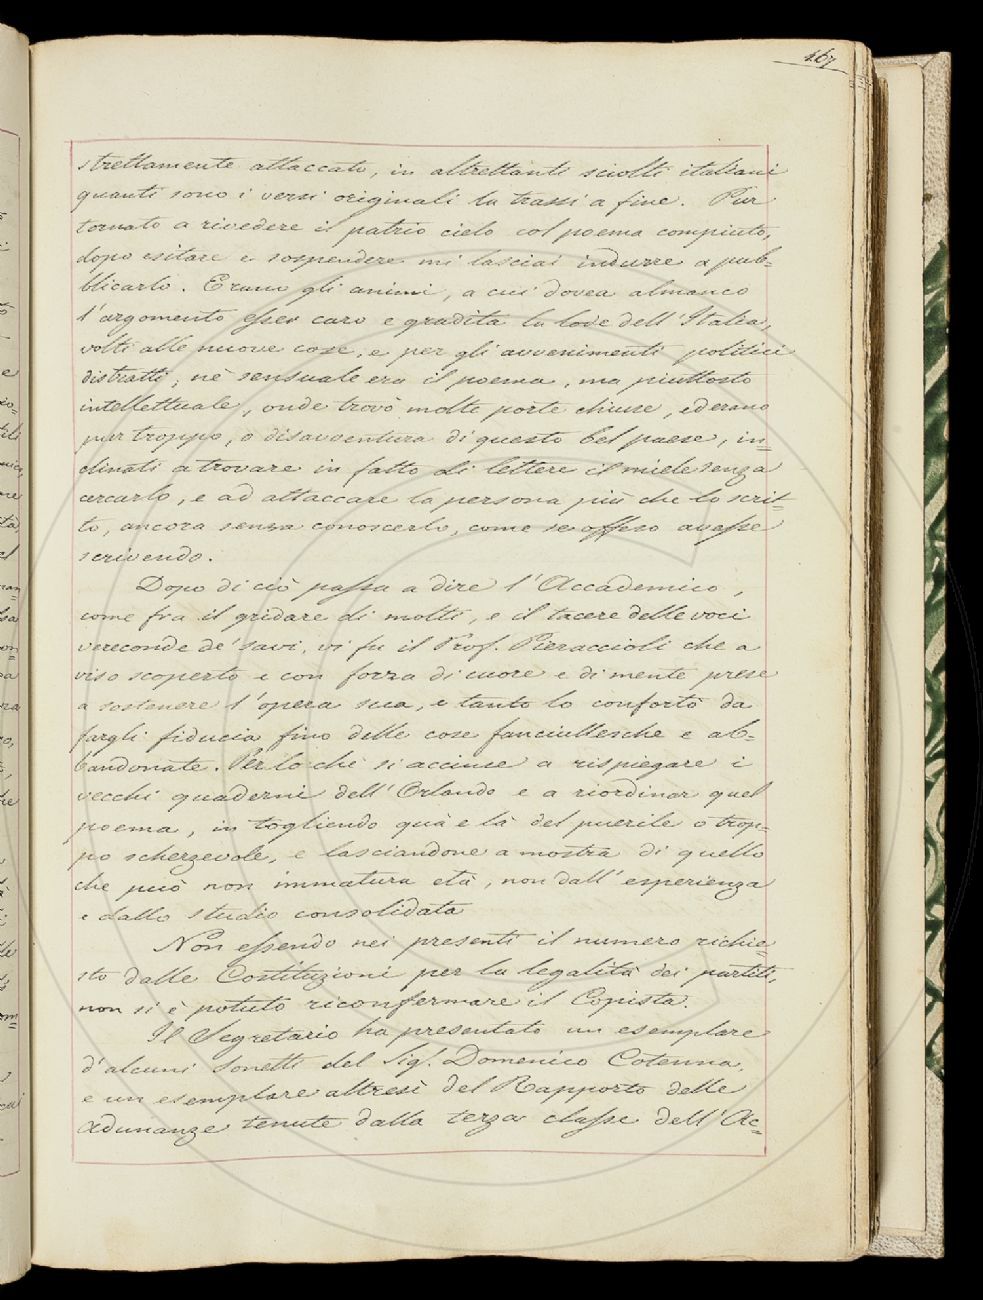 467
strettamente attaccato, in altrettanti sciolti italiani
quanti sono i versi originali la trassi a fine. Pur
tornato a rivedere il patrio cielo col poema compiuto,
dopo esitare e sospendere mi lasciai indurre a pub=
blicarlo. Erano gli animi, a cui dovea almanco
l'argomento esser caro e gradita la lode dell'Italia,
volti alle nuove cose, e per gli avvenimenti politici
distratti, nè sensuale era il poema, ma piuttosto
intellettuale, onde trovò molte porte chiuse, ed erano
pur troppo, o disavventura di questo bel paese, in=
clinati a trovare in fatto di lettere il miele senza
cercarlo, e ad attaccare la persona più che lo scrit=
to, ancora senza conoscerlo, come se offeso avesse
scrivendo.
Dopo di ciò passa a dire l'Accademico,
come fra il gridare di molti, e il tacere delle voci
vereconde de' savi, vi fu il Prof. Pieraccioli che a
viso scoperto e con forza di cuore e di mente prese
a sostenere l'opera sua, e tanto lo confortò da
fargli fiducia fino delle cose fanciullesche e ab=
bandonate. Per lo chè si accinse a rispiegare i
vecchi quaderni dell'Orlando e a riordinar quel
poema, in togliendo quà e là del puerile o trop=
po scherzevole, e lasciandone a mostra di quello
che può non immatura età, non dall'esperienza
e dallo studio consolidata
Non essendo nei presenti il numero richie=
sto dalle Costituzioni per la legalità dei partiti,
non si è potuto riconfermare il Copista.
Il Segretario ha presentato un esemplare
d'alcuni Sonetti del Sig.r Domenico Cotenna,
e un esemplare altresì del Rapporto delle
adunanze tenute dalla terza classe dell'Ac=